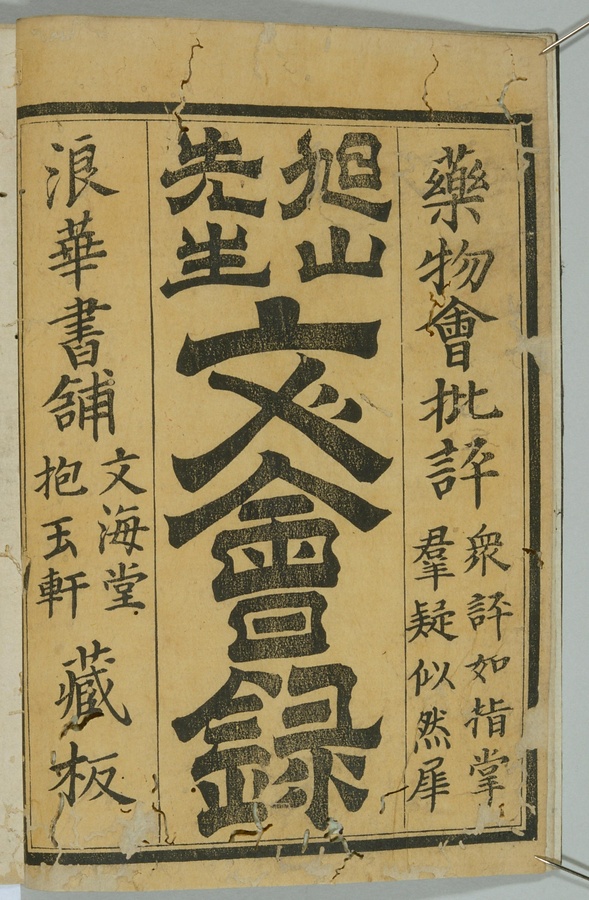 藥物會批評
衆評如指掌
羣疑似然犀
旭山
先生
文會録
浪華書舖
文海堂
抱玉軒
藏板